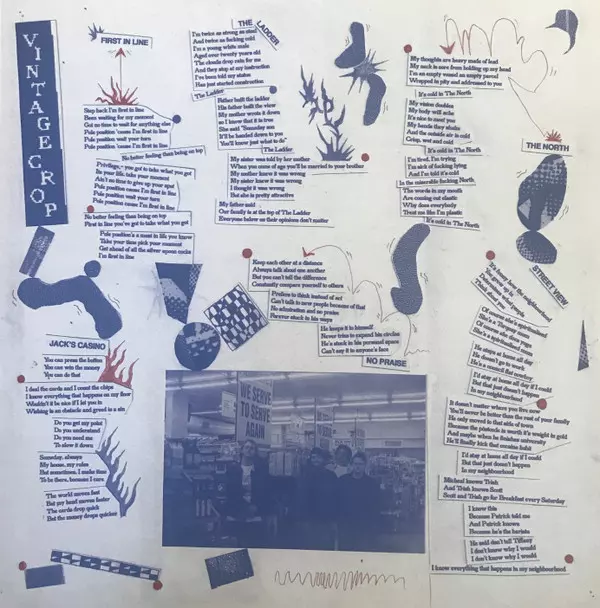 VINTAGE CROP
FIRST IN LINE
Step back I'm first in line
Been waiting for my moment
Got no time to wait for anything else
Pole position 'cause I'm first in line
Pole position wait your turn
Pole position 'cause I'm first in line
No better feeling than being on top
Privilege, you got to take what you got
Its your life, take your moment
Ain't no time to give up your spot
Pole position cause I'm first in line
Pole position wait your turn
Pole position cause I'm first in line
No better feeling than being on top
First in line you've got to take what you got
Pole position's a must in life you know
Take your time pick your moment
Get ahead of all the silver spoon cucks
I'm first in line
JACK'S CASINO
You can press the button
You can win the money
You can do that
I deal the cards and I count the chips
I know everything that happens on my floor
Wouldn't it be nice if I let you in
Wishing is an obstacle and greed is a sin
Do you get my point
Do you understand
Do you need me
To slow it down
Someday, always
My house, my rules
But sometimes, I make time
To be there, because I care
The world moves fast
But my head moves faster
The cards drop quick
But the money drops quicker
THE LADDER
I'm twice as strong as steel
And twice as fucking cold
I'm a young white male
Aged over twenty years old
The clouds drop rain for me
And they stop at my instruction
I've been told my status
Has just started construction
The Ladder
Father built the ladder
His father built the view
My mother wrote it down
So I know that it is true
She said "Someday son
It'll be handed down to you
You'll know just what to do"
The Ladder
My sister was told by her mother
When you come of age you'll be married to your brother
My mother knew it was wrong
My sister knew it was wrong
I thought it was wrong
But she is pretty attractive
My father said
Our family is at the top of The Ladder
Everyone below us their opinions don't matter
Keep each other at a distance
Always talk about one another
But you can't tell the difference
Constantly compare yourself to others
Prefers to think instead of act
Can't talk to new people because of that
No admiration and no praise
Forever stuck in his ways
He keeps it to himself
Never tries to expand his circles
He's stuck in his personal space
Can't say it to anyone's face
NO PRAISE
WE SERVE
TO SERVE
AGAIN
My thoughts are heavy made of lead
My neck is sore from holding up my head
I'm an empty vessel an empty parcel
Wrapped in pity and addressed to you
It's cold in The North
My vision doubles
My body will ache
It's nice to meet you
My hands they shake
And the outside air is cold
Crisp, wet and cold
It's cold in The North
I'm tired, I'm trying
I'm sick of fucking lying
And I'm told it's cold
In the miserable fucking North
The words in my mouth
Are coming out plastic
Why does everybody
Treat me like I'm plastic
It's cold in The North
THE NORTH
STREET VIEW
Of course she's spiritualised
Of course she does yoga
He stays at home all day
He doesn't go to work
I'd stay at home all day if I could
But that just doesn't happen
In my neighbourhood
It doesn't matter where you live now
You'll never be better than the rest of your family
He only moved to that side of town
Because the postcode is worth it's weight in gold
And maybe when he finishes university
He'll finally kick that cocaine habit
I'd stay at home all day if I could
But that just doesn't happen
In my neighbourhood
Micheal knows Trish
And Trish knows Scott
Scott and Trish go for Breakfast every Saturday
I know this
Because Patrick told me
And Patrick knows
Because he's the barista
He said don't tell Tiffany
I don't know why I would
I don't know why I would
I know everything that happens in my neighbourhood